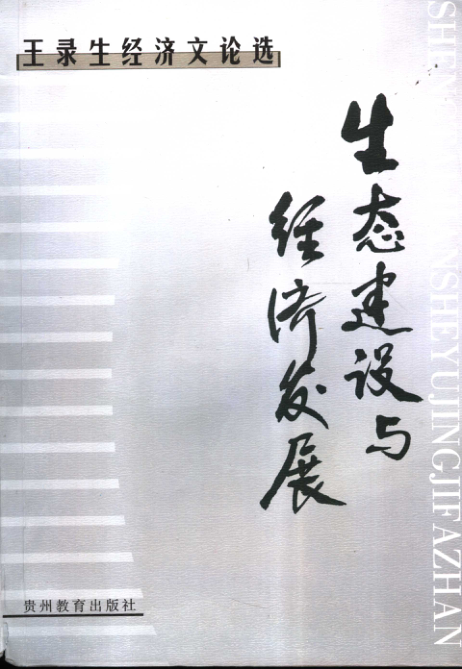 王录生经济文论选
生态建设与
经济发展
SHENGTAIJIANSHEYUJINGJIFAZHAN
贵州教育出版社